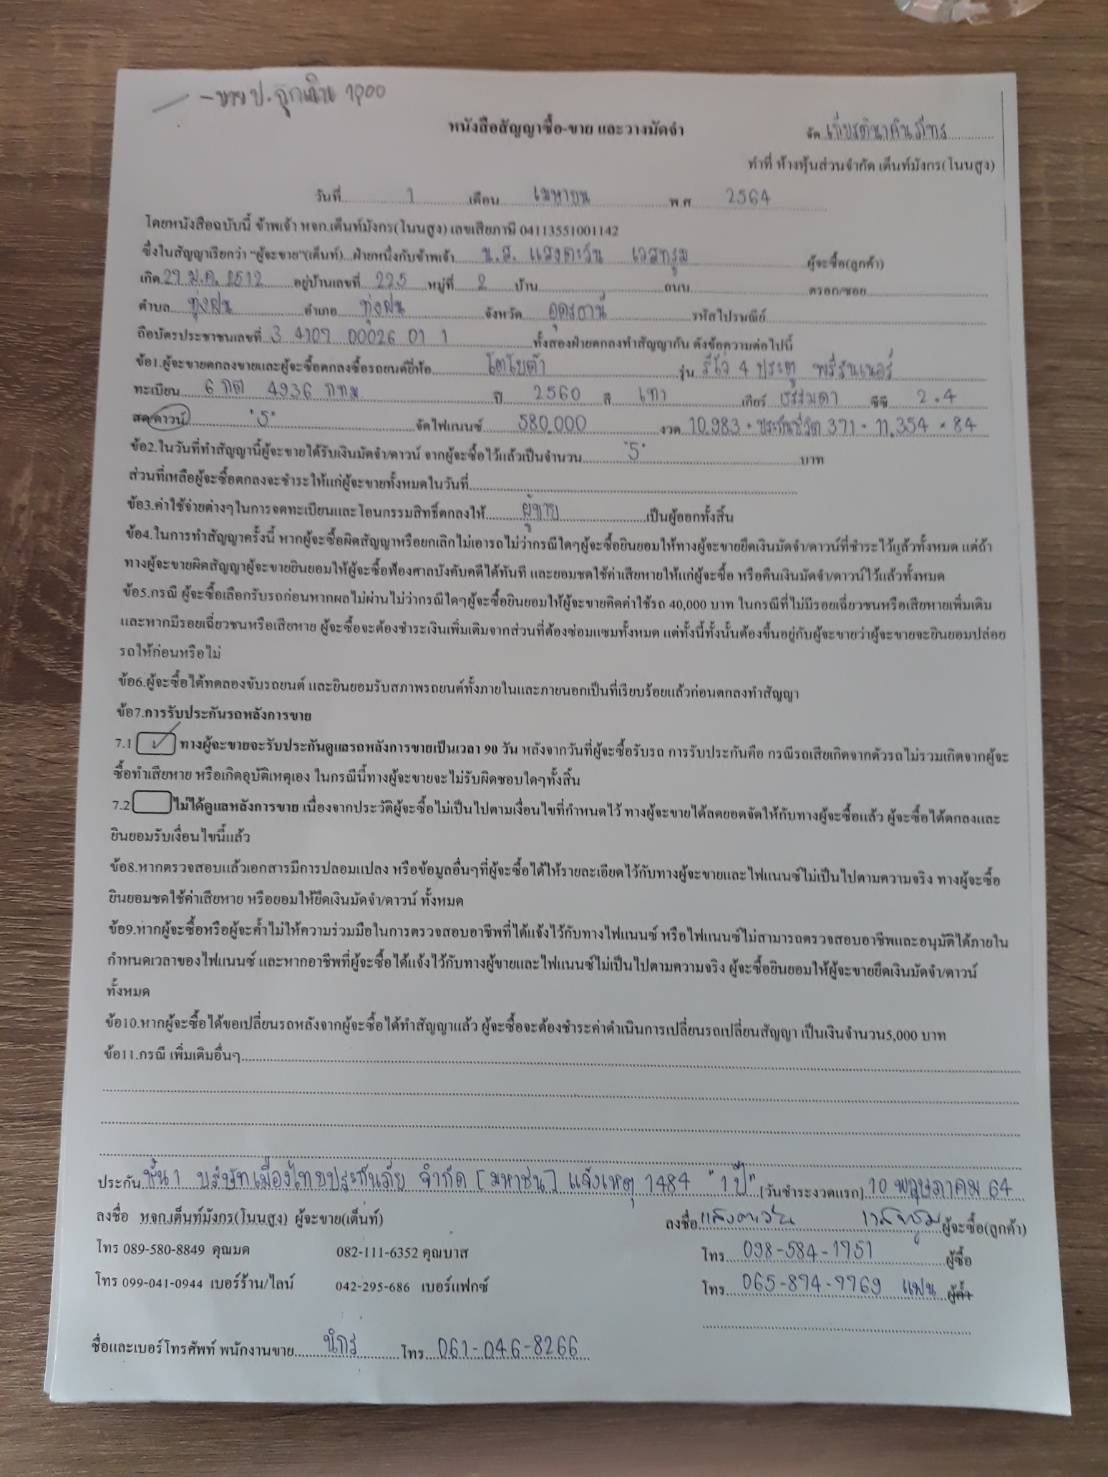 - ขาย ป. ฉุกเฉิน 1900
หนังสือสัญญาซื้อ-ขาย และวางมัดจำ
จัด เกียรตินาคินภัทร
ทำที่ ห้างหุ้นส่วนจำกัด เต็นท์มังกร(โนนสูง)
วันที่ 1 เดือน เมษายน พ.ศ 2564
โดยหนังสือฉบับนี้ ข้าพเจ้า หจก.เต็นท์มังกร(โนนสูง) เลขเสียภาษี 04113551001142
ซึ่งในสัญญาเรียกว่า "ผู้จะขาย"(เต็นท์)...ฝ่ายหนึ่งกับข้าพเจ้า น.ส. แสงตะวัน ผู้จะซื้อ(ลูกค้า)
เกิด 29 ม.ค. 2512 อยู่บ้านเลขที่ 225 หมู่ที่ 2 บ้าน ถนน ตรอก/ซอย
ตำบล ทุ่งฝน อำเภอ ทุ่งฝน จังหวัด อุดรธานี รหัสไปรษณีย์
ถือบัตรประชาชนเลขที่ 3 4107 00026 01 1 ทั้งสองฝ่ายตกลงทำสัญญากัน ดังข้อความต่อไปนี้
ข้อ1.ผู้จะขายตกลงขายและผู้จะซื้อตกลงซื้อรถยนต์ยี่ห้อ โตโยต้า รุ่น รีโว่ 4 ประตู พรีรันเนอร์
ทะเบียน 6 กต 4936 กทม ปี 2560 สี เทา เกียร์ ธรรมดา ซีซี 2.4
สด/ดาวน์ "5" จัดไฟแนนซ์ 580,000 งวด 10,983 + ประกันชีวิต 371 = 11,354 × 84
ข้อ2.ในวันที่ทำสัญญานี้ผู้จะขายได้รับเงินมัดจำ/ดาวน์ จากผู้จะซื้อไว้แล้วเป็นจำนวน "5" บาท
ส่วนที่เหลือผู้จะซื้อตกลงจะชำระให้แก่ผู้จะขายทั้งหมดในวันที่
ข้อ3.ค่าใช้จ่ายต่างๆในการจดทะเบียนและโอนกรรมสิทธิ์ตกลงให้ ผู้ขาย เป็นผู้ออกทั้งสิ้น
ข้อ4.ในการทำสัญญาครั้งนี้ หากผู้จะซื้อผิดสัญญาหรือยกเลิกไม่เอารถไม่ว่ากรณีใดๆผู้จะซื้อยินยอมให้ทางผู้จะขายยึดเงินมัดจำ/ดาวน์ที่ชำระไว้แล้วทั้งหมด แต่ถ้า
ทางผู้จะขายผิดสัญญาผู้จะขายยินยอมให้ผู้จะซื้อฟ้องศาลบังคับคดีได้ทันที และยอมชดใช้ค่าเสียหายให้แก่ผู้จะซื้อ หรือคืนเงินมัดจำ/ดาวน์ไว้แล้วทั้งหมด
ข้อ5.กรณี ผู้จะซื้อเลือกรับรถก่อนหากผลไม่ผ่านไม่ว่ากรณีใดๆผู้จะซื้อยินยอมให้ผู้จะขายคิดค่าใช้รถ 40,000 บาท ในกรณีที่ไม่มีรอยเฉี่ยวชนหรือเสียหายเพิ่มเติม
และหากมีรอยเฉี่ยวชนหรือเสียหาย ผู้จะซื้อจะต้องชำระเงินเพิ่มเติมจากส่วนที่ต้องซ่อมแซมทั้งหมด แต่ทั้งนี้ทั้งนั้นต้องขึ้นอยู่กับผู้จะขายว่าผู้จะขายจะยินยอมปล่อย
รถให้ก่อนหรือไม่
ข้อ6.ผู้จะซื้อได้ทดลองขับรถยนต์ และยินยอมรับสภาพรถยนต์ทั้งภายในและภายนอกเป็นที่เรียบร้อยแล้วก่อนตกลงทำสัญญา
ข้อ7.การรับประกันรถหลังการขาย
7.1 ✓ ทางผู้จะขายจะรับประกันดูแลรถหลังการขายเป็นเวลา 90 วัน หลังจากวันที่ผู้จะซื้อรับรถ การรับประกันคือ กรณีรถเสียเกิดจากตัวรถ ไม่รวมเกิดจากผู้จะ
ซื้อทำเสียหาย หรือเกิดอุบัติเหตุเอง ในกรณีนี้ทางผู้จะขายจะไม่รับผิดชอบใดๆทั้งสิ้น
7.2 ไม่ได้ดูแลหลังการขาย เนื่องจากประวัติผู้จะซื้อไม่เป็นไปตามเงื่อนไขที่กำหนดไว้ ทางผู้จะขายได้ลดยอดจัดให้กับทางผู้จะซื้อแล้ว ผู้จะซื้อได้ตกลงและ
ยินยอมรับเงื่อนไขนี้แล้ว
ข้อ8.หากตรวจสอบแล้วเอกสารมีการปลอมแปลง หรือข้อมูลอื่นๆที่ผู้จะซื้อได้ให้รายละเอียดไว้กับทางผู้จะขายและไฟแนนซ์ไม่เป็นไปตามความจริง ทางผู้จะซื้อ
ยินยอมชดใช้ค่าเสียหาย หรือยอมให้ยึดเงินมัดจำ/ดาวน์ ทั้งหมด
ข้อ9.หากผู้จะซื้อหรือผู้จะค้ำไม่ให้ความร่วมมือในการตรวจสอบอาชีพที่ได้แจ้งไว้กับทางไฟแนนซ์ หรือไฟแนนซ์ไม่สามารถตรวจสอบอาชีพและอนุมัติได้ภายใน
กำหนดเวลาของไฟแนนซ์ และหากอาชีพที่ผู้จะซื้อได้แจ้งไว้กับทางผู้ขายและไฟแนนซ์ไม่เป็นไปตามความจริง ผู้จะซื้อยินยอมให้ผู้จะขายยึดเงินมัดจำ/ดาวน์
ทั้งหมด
ข้อ10.หากผู้จะซื้อได้ขอเปลี่ยนรถหลังจากผู้จะซื้อได้ทำสัญญาแล้ว ผู้จะซื้อจะต้องชำระค่าดำเนินการเปลี่ยนรถเปลี่ยนสัญญา เป็นเงินจำนวน5,000 บาท
ข้อ11.กรณี เพิ่มเติมอื่นๆ
ประกัน ชั้น 1 บริษัทเมืองไทยประกันภัย จำกัด [มหาชน] แจ้งเหตุ 1484 "1 ปี" (วันชำระงวดแรก) 10 พฤษภาคม 64
ลงชื่อ หจก.เต็นท์มังกร(โนนสูง) ผู้จะขาย(เต็นท์) ลงชื่อ แสงตะวัน ผู้จะซื้อ(ลูกค้า)
โทร 089-580-8849 คุณมด 082-111-6352 คุณบาส โทร 098-584-1951 ผู้ซื้อ
โทร 099-041-0944 เบอร์ร้าน/ไลน์ 042-295-686 เบอร์แฟกซ์ โทร 065-894-9769 แฟน ผู้ค้ำ
ชื่อและเบอร์โทรศัพท์ พนักงานขาย นิกร โทร 061-046-8266